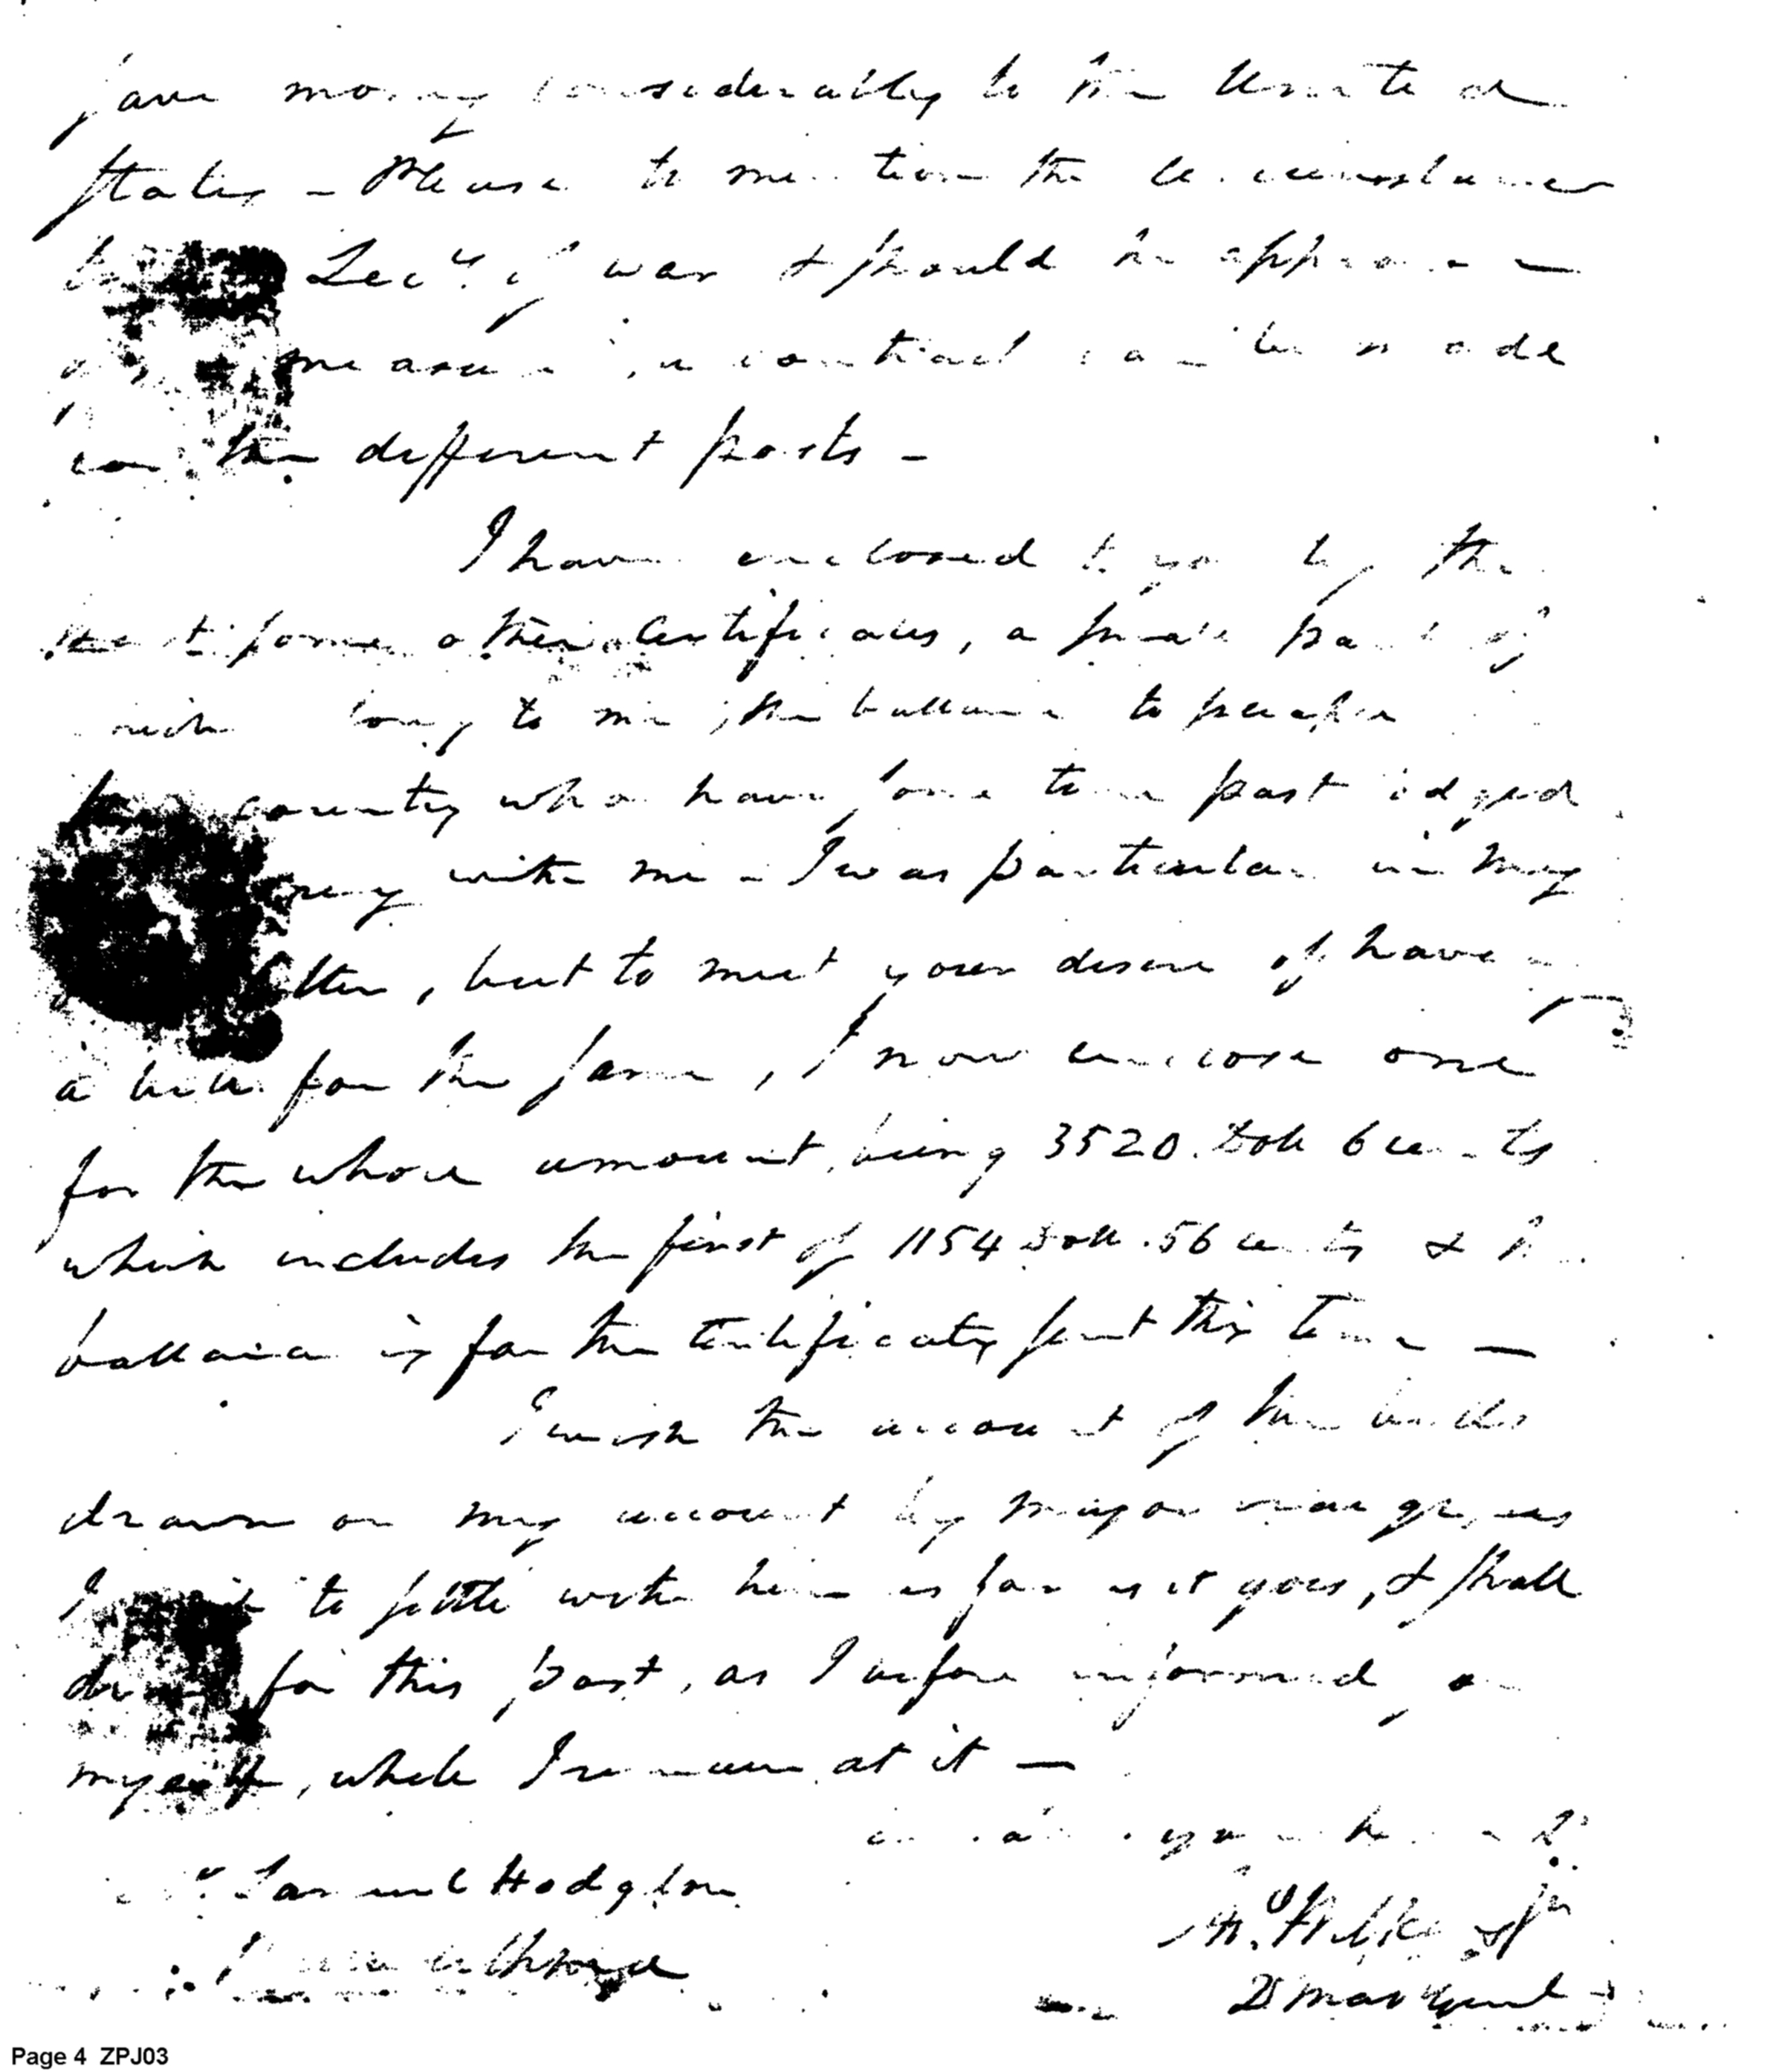 save money considerably to the United
States - Please to mention the circumstances
to Secy of war & should he approve
measure, a contract can be made
for the different posts -
I have enclosed to you by the
some other Certificates, a small part of
which belong to me, the ballance to people
country who have some time past lodged
with me - I was particular in my
letter, but to meet your desire of having
a bill for the same, I now enclose one
for the whole amount, being 3520. Doll 6 cents
which includes the first of 1154 Doll. 56 cents & the
ballance is for the Certificates sent this time —
I wish the account of the bills
drawn on my account by major
I to settle with him as far as it goes, & shall
draw for this post, as I before informed, on
myself, while I remain at it —
Samuel Hodgdon
Philadelphia
D Mas Genl
Page 4 ZPJ03